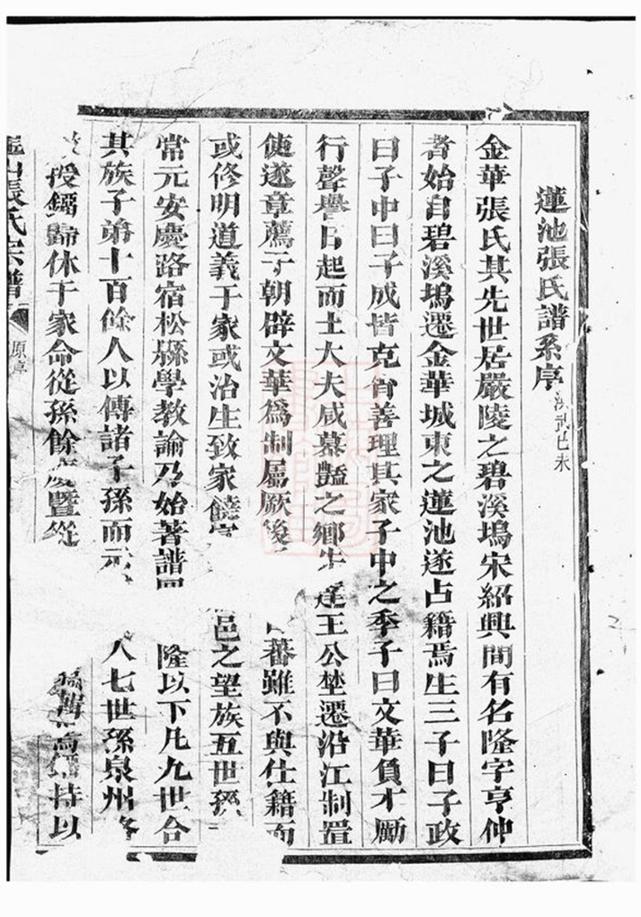 蓮池張氏譜系序 洪武己未
金華張氏其先世居嚴陵之碧溪塢宋紹興間有名隆字亨仲
者始自碧溪塢遷金華城東之蓮池遂占籍焉生三子曰子政
曰子中曰子成皆克肖善理其家子中之季子曰文華負才勵
行聲譽日起而士大夫咸慕豔之鄉先達王公埜遷沿江制置
使遂章薦于朝辟文華為制屬厥後 蕃雖不與仕籍而
或修明道義于家或治生致家饒 邑之望族五世孫
常元安慶路宿松縣學教諭乃始著譜 隆以下凡九世合
其族子弟十百餘人以傳諸子孫而元 人七世孫泉州
投鐲歸休于家命從孫餘慶暨從 持以
張氏宗譜 原序